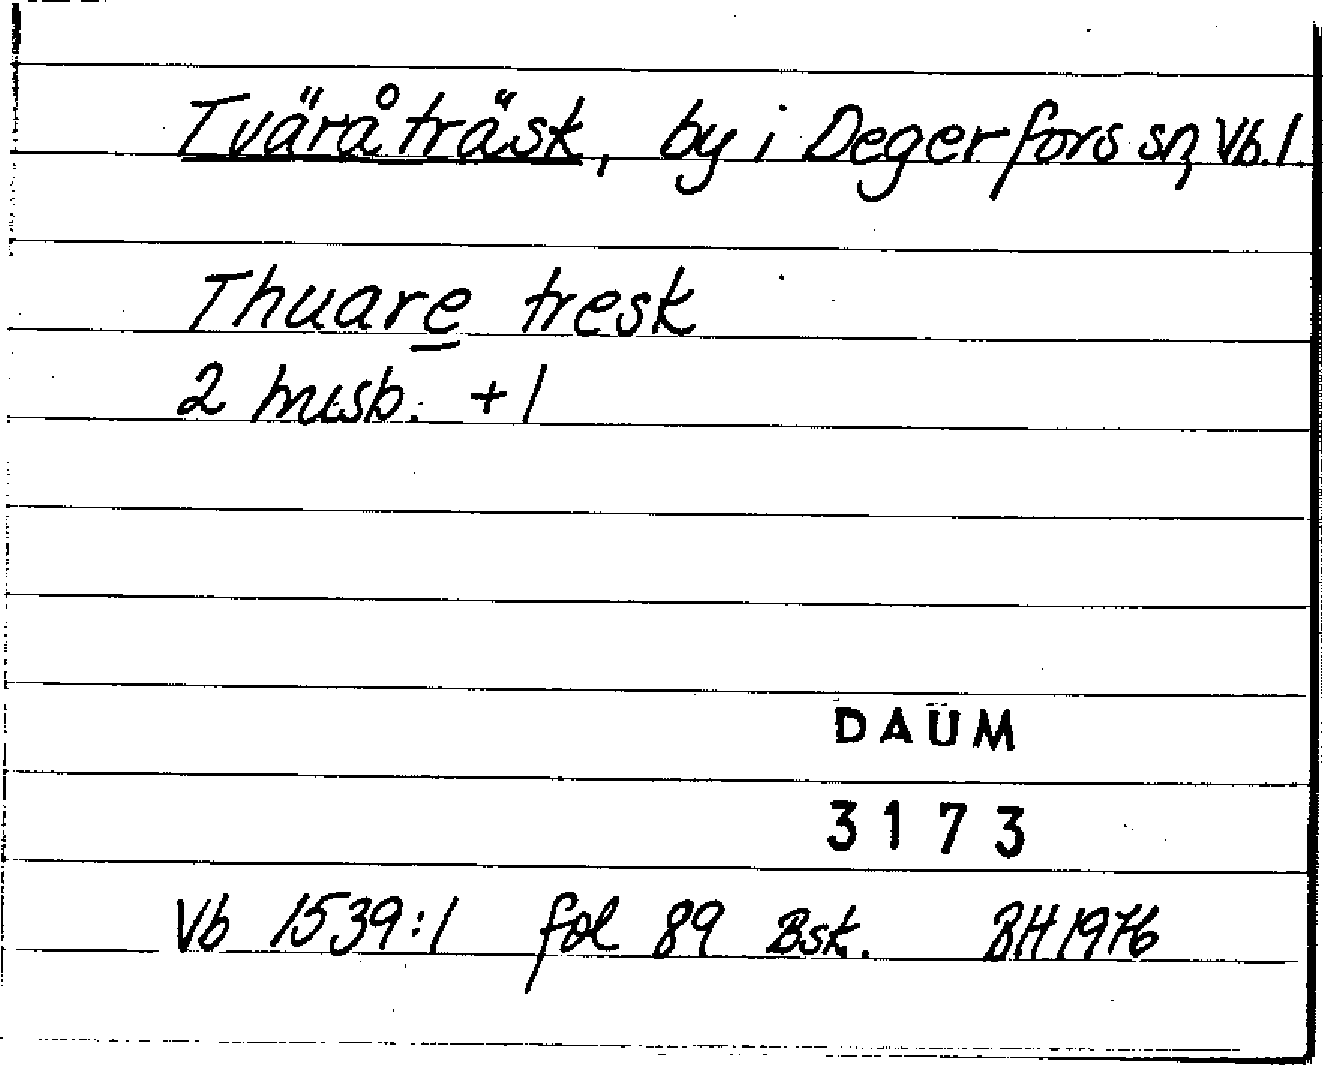 Tväråträsk, by i Degerfors sn, Vb.l.
Thuare tresk
2 husb. + 1
DAUM
3173
Vb 1539:1 fol 89 Bsk. BH 1976